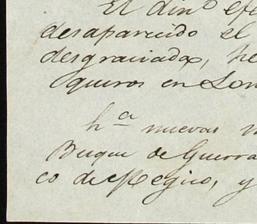 El din.º efe
desaparecido el
desgraciada, he
queros en Lon
h.ª nuevas
Buque de Guerra
co de Megico, y